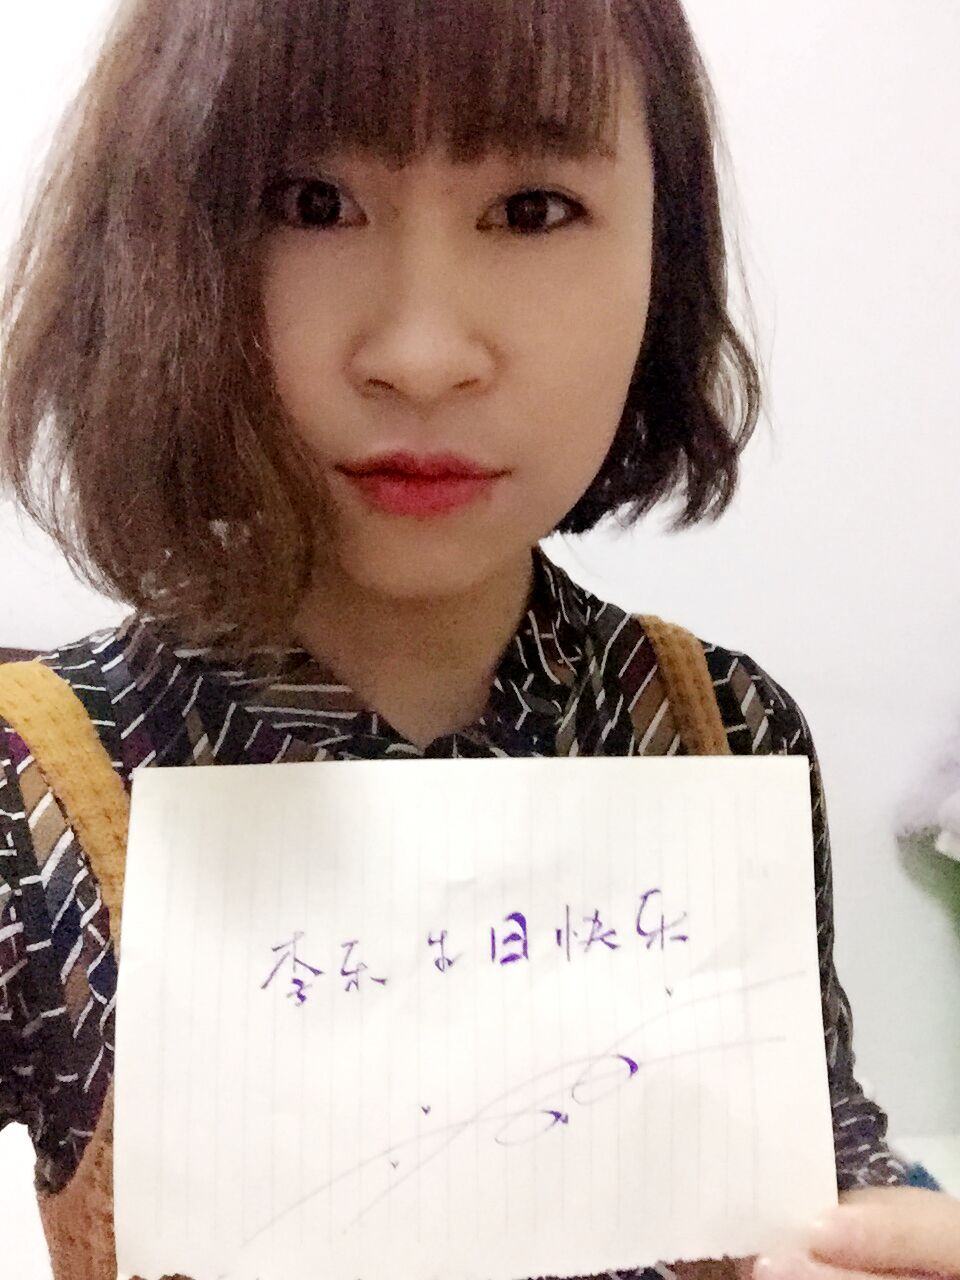 李东生日快乐